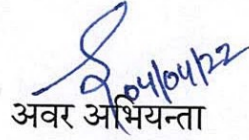 04/04/22
अवर अभियन्ता